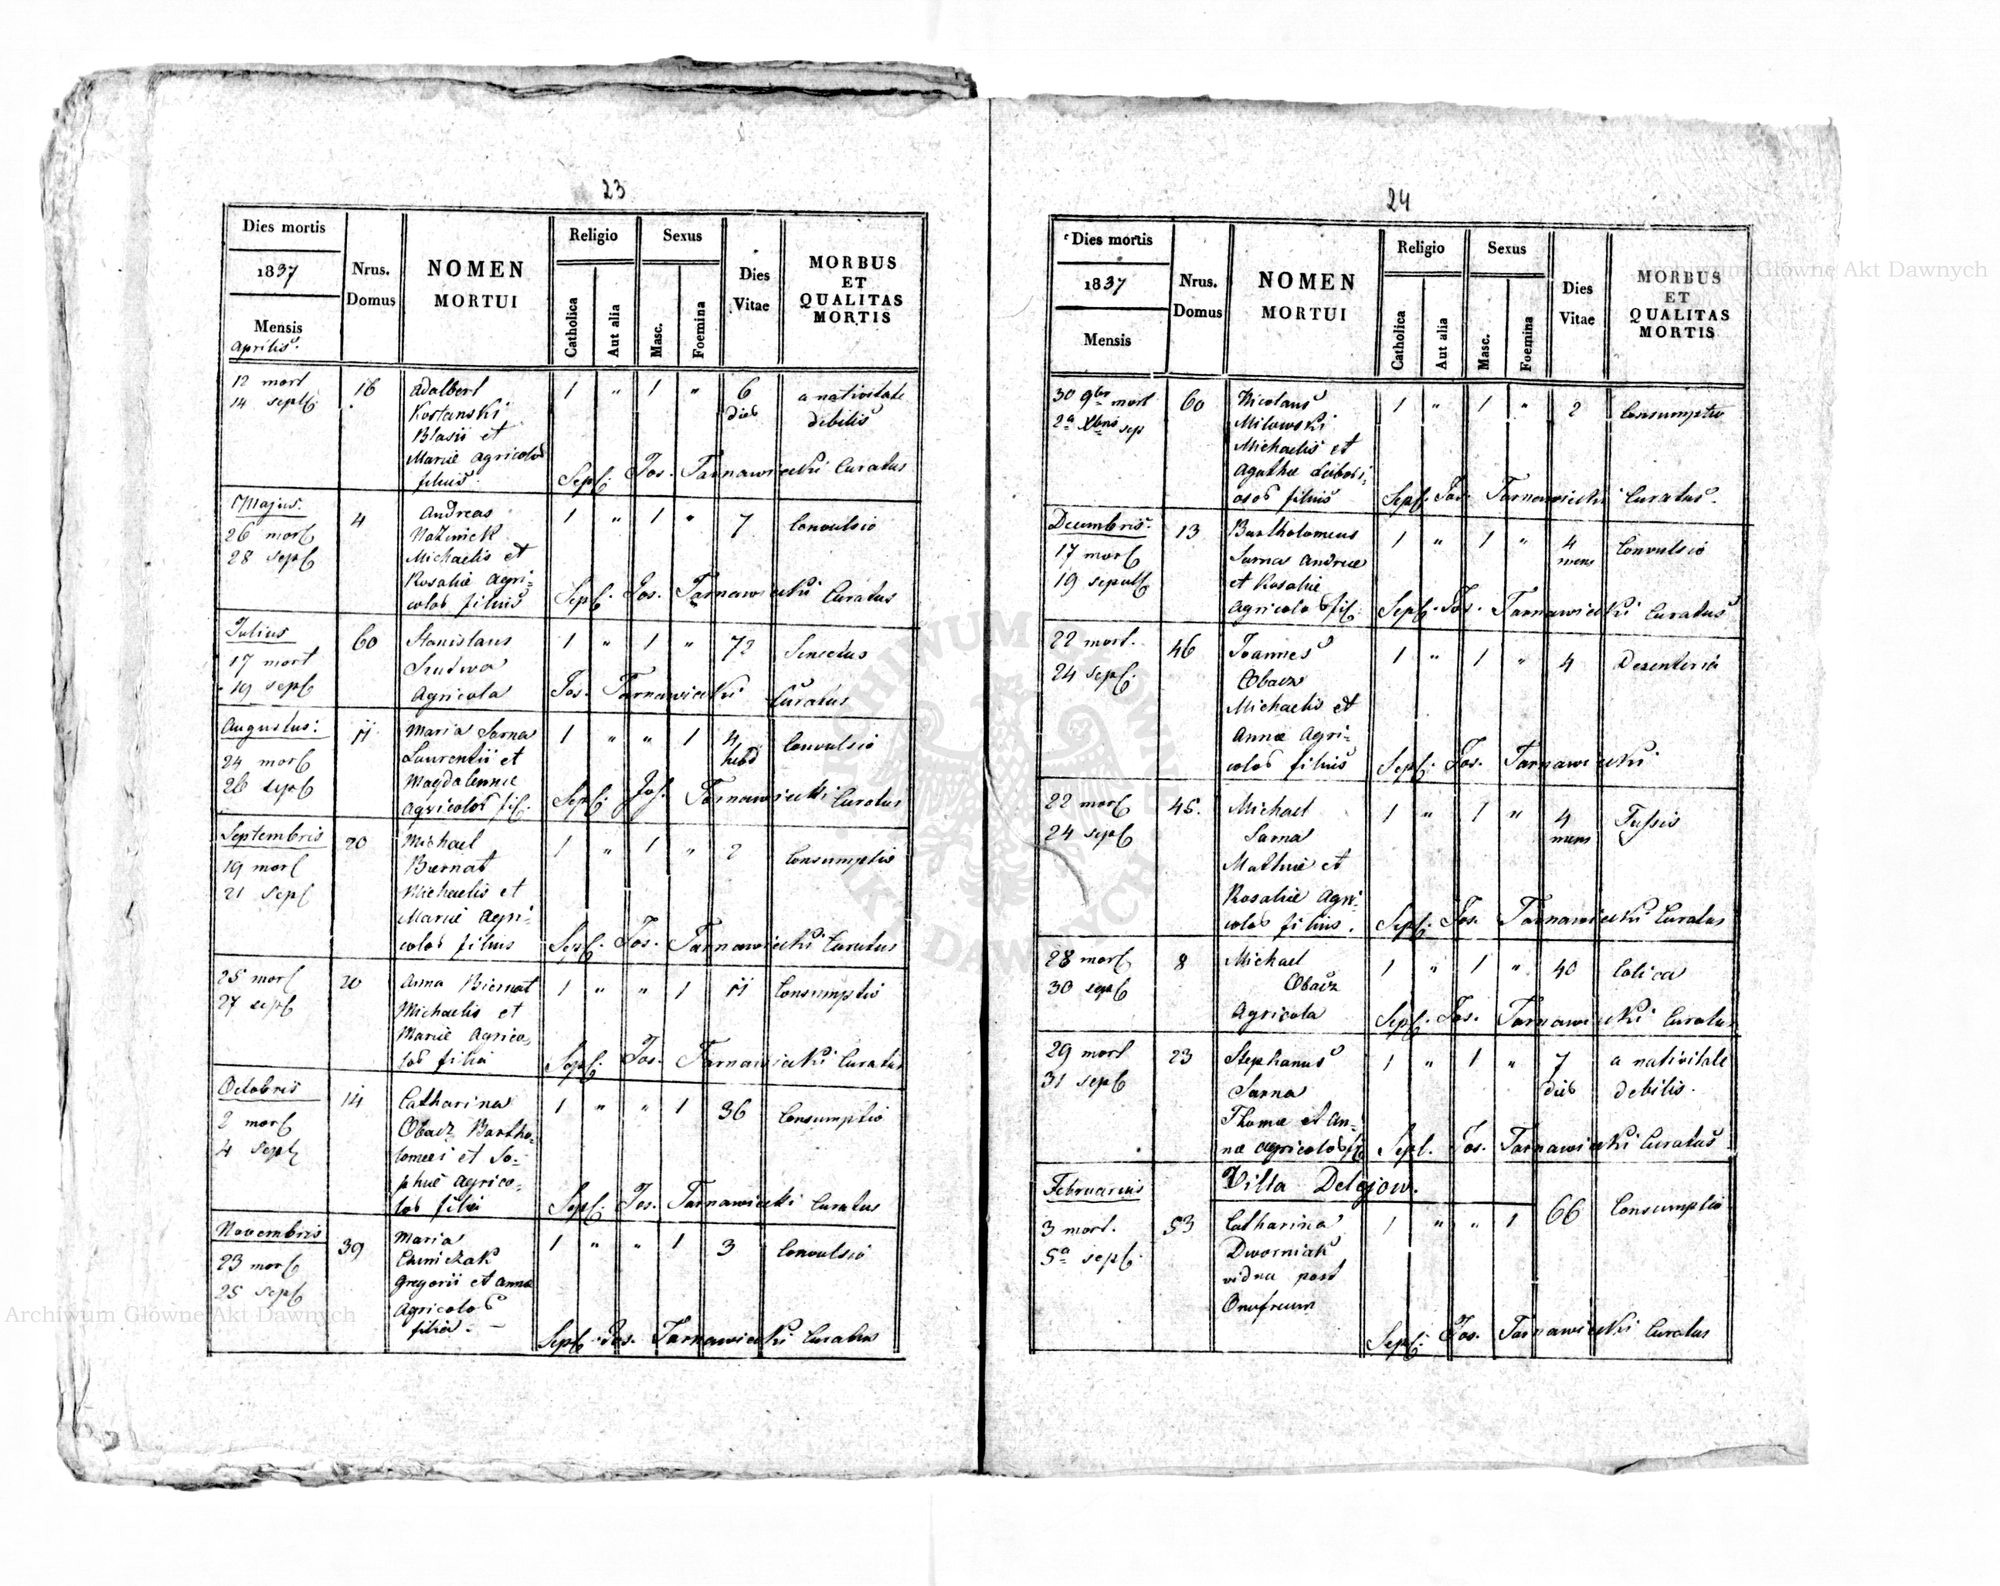 23
Dies mortis
1837
Mensis
Aprilis.
Nrus.
Domus
NOMEN
MORTUI
Religio
Catholica
Aut alia
Sexus
Masc.
Foemina
Dies
Vitae
MORBUS
ET
QUALITAS
MORTIS
12 mort
14 sept
16
Adalbert
Blasii et
Mariæ agricolos
filius.
1 " 1 " 6
dies
a nativitate
debilis
Sep: Jos. Tarnawiecki Curatus
Majus.
26 mor
28 sep
4
Andreas
Michaelis et
Rosaliæ Agri-
colos filius
1 " 1 " 7
Convulsio
Sep: Jos. Tarnawiecki Curatus
Julius
17 mort
19 sep
60
Stanislaus
Agricola
1 " 1 " 72
Senectus
Jos. Tarnawiecki Curatus
Augustus:
24 mor
26 sep
11
Maria Sarna
Laurentii et
Magdalennæ
agricolos fil.
1 " " 1 4
hebd
Convulsio
Sep: Jos. Tarnawiecki Curatus
Septembris
19 mor
21 Sep
20
Michael
Biernat
Michaelis et
Mariæ Agri-
colos filius
1 " 1 " 2
Consumptio
Sep: Jos. Tarnawiecki Curatus
25 mor
27 sep
20
Anna Biernat
Michaelis et
Mariæ Agrico-
los filia
1 " " 1 11
Consumptio
Sep: Jos. Tarnawiecki Curatus
Octobris
2 mor
4 Sep
14
Catharina
Obacz Bartho-
lomei et So-
phiæ agrico-
los filia
1 " " 1 36
Consumptio
Sep: Jos. Tarnawiecki Curatus
Novembris
23 mor
25 sep
39
Maria
Gregorii et Annæ
Agricolos
filia. -
1 " " 1 3
Convulsio
Sep Jos. Tarnawiecki Curatus
24
Dies mortis
1837
Mensis
Nrus.
Domus
NOMEN
MORTUI
Religio
Catholica
Aut alia
Sexus
Masc.
Foemina
Dies
Vitae
MORBUS
ET
QUALITAS
MORTIS
30 9br mort
2a Xbris sep
60
Nicolaus
Milowski
Michaelis et
Agathæ
filius
1 " 1 " 2
Consumptio
Sep: Jos. Tarnawiecki Curatus.
Decembris.
17 mor
19 sepult
13
Bartholomeus
Sarna Andreæ
et Rosaliæ
Agricolos fil:
1 " 1 " 4
mens
Convulsio
Sep: Jos. Tarnawiecki Curatus
22 mort.
24 sep:
46
Joannes
Obacz
Michaelis et
Annæ Agri-
colos filius
1 " 1 " 4
Desenteria
Sep: Jos. Tarnawiecki
22 mor
24 sep
45.
Michael
Sarna
Mathiæ et
Rosaliæ Agri-
colos filius.
1 " 1 " 4
mens
Tussis
Sep: Jos. Tarnawiecki Curatus
28 mor
30 sep
8
Michael
Obacz
Agricola
1 " 1 " 40
Colica
Sep: Jos. Tarnawiecki Curatus
29 mort
31 sep
23
Stephanus
Sarna
Thomæ et An-
næ agricolos fil
1 " 1 " 7
dies
a nativitate
debilis.
Sepl. Jos. Tarnawiecki Curatus
Februarius
Villa Delejow.
3 mort.
5a sep:
53
Catharina
Dworniak
vidua post
Onufreum
1 " " 1 66
Consumptio
Sep: Jos. Tarnawiecki Curatus
Archiwum Główne Akt Dawnych
Archiwum Główne Akt Dawnych
ARCHIWUM GŁÓWNE AKT DAWNYCH